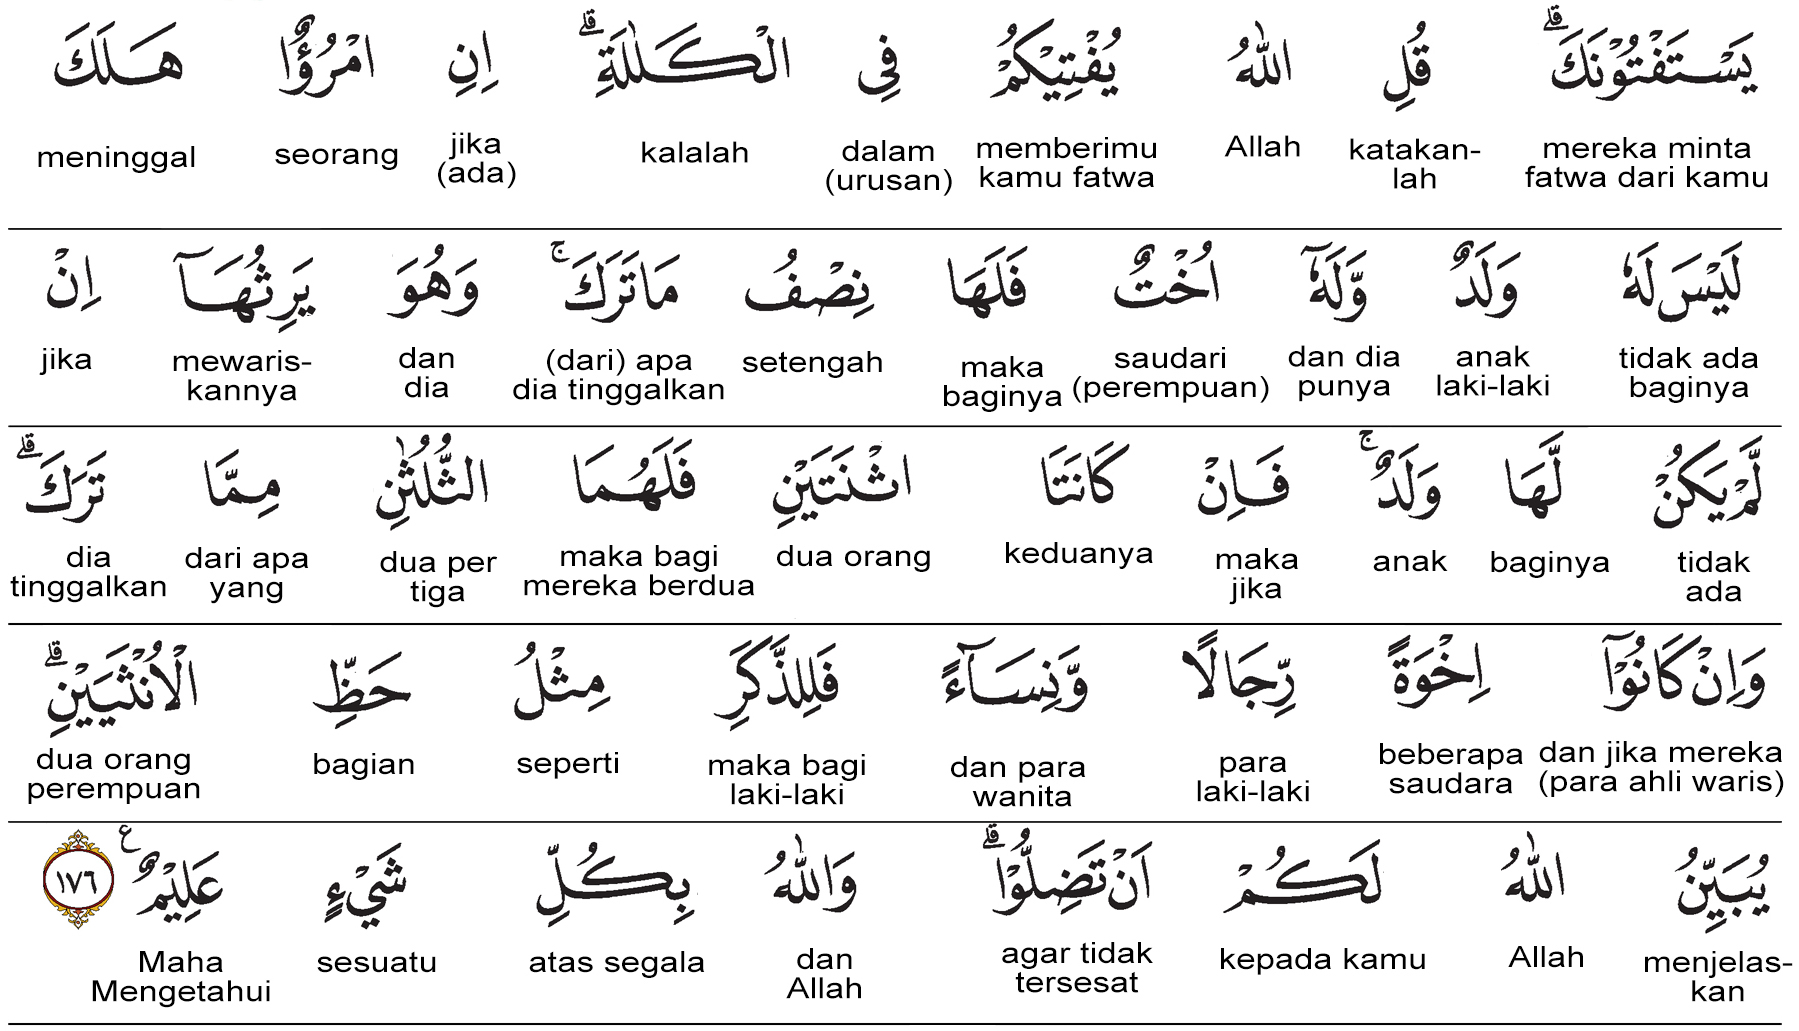 يَسْتَفْتُوْنَكَۗ قُلِ اللّٰهُ يُفْتِيْكُمْ فِى الْكَلٰلَةِۗ اِنِ امْرُؤٌا هَلَكَ
mereka minta fatwa dari kamu katakan-lah Allah memberimu kamu fatwa dalam (urusan) kalalah jika (ada) seorang meninggal
لَيْسَ لَهٗ وَلَدٌ وَّلَهٗٓ اُخْتٌ فَلَهَا نِصْفُ مَا تَرَكَۚ وَهُوَ يَرِثُهَآ اِنْ
tidak ada baginya anak laki-laki dan dia punya saudari (perempuan) maka baginya setengah (dari) apa dia tinggalkan dan dia mewaris-kannya jika
لَّمْ يَكُنْ لَّهَا وَلَدٌۚ فَاِنْ كَانَتَا اثْنَتَيْنِ فَلَهُمَا الثُّلُثٰنِ مِمَّا تَرَكَۗ
tidak ada baginya anak maka jika keduanya dua orang maka bagi mereka berdua dua per tiga dari apa yang dia tinggalkan
وَاِنْ كَانُوْٓا اِخْوَةً رِّجَالًا وَّنِسَاۤءً فَلِلذَّكَرِ مِثْلُ حَظِّ الْاُنْثَيَيْنِۗ
dan jika mereka (para ahli waris) beberapa saudara para laki-laki dan para wanita maka bagi laki-laki seperti bagian dua orang perempuan
يُبَيِّنُ اللّٰهُ لَكُمْ اَنْ تَضِلُّوْاۗ وَاللّٰهُ بِكُلِّ شَيْءٍ عَلِيْمٌ ع ١٧٦
menjelas-kan Allah kepada kamu agar tidak tersesat dan Allah atas segala sesuatu Maha Mengetahui